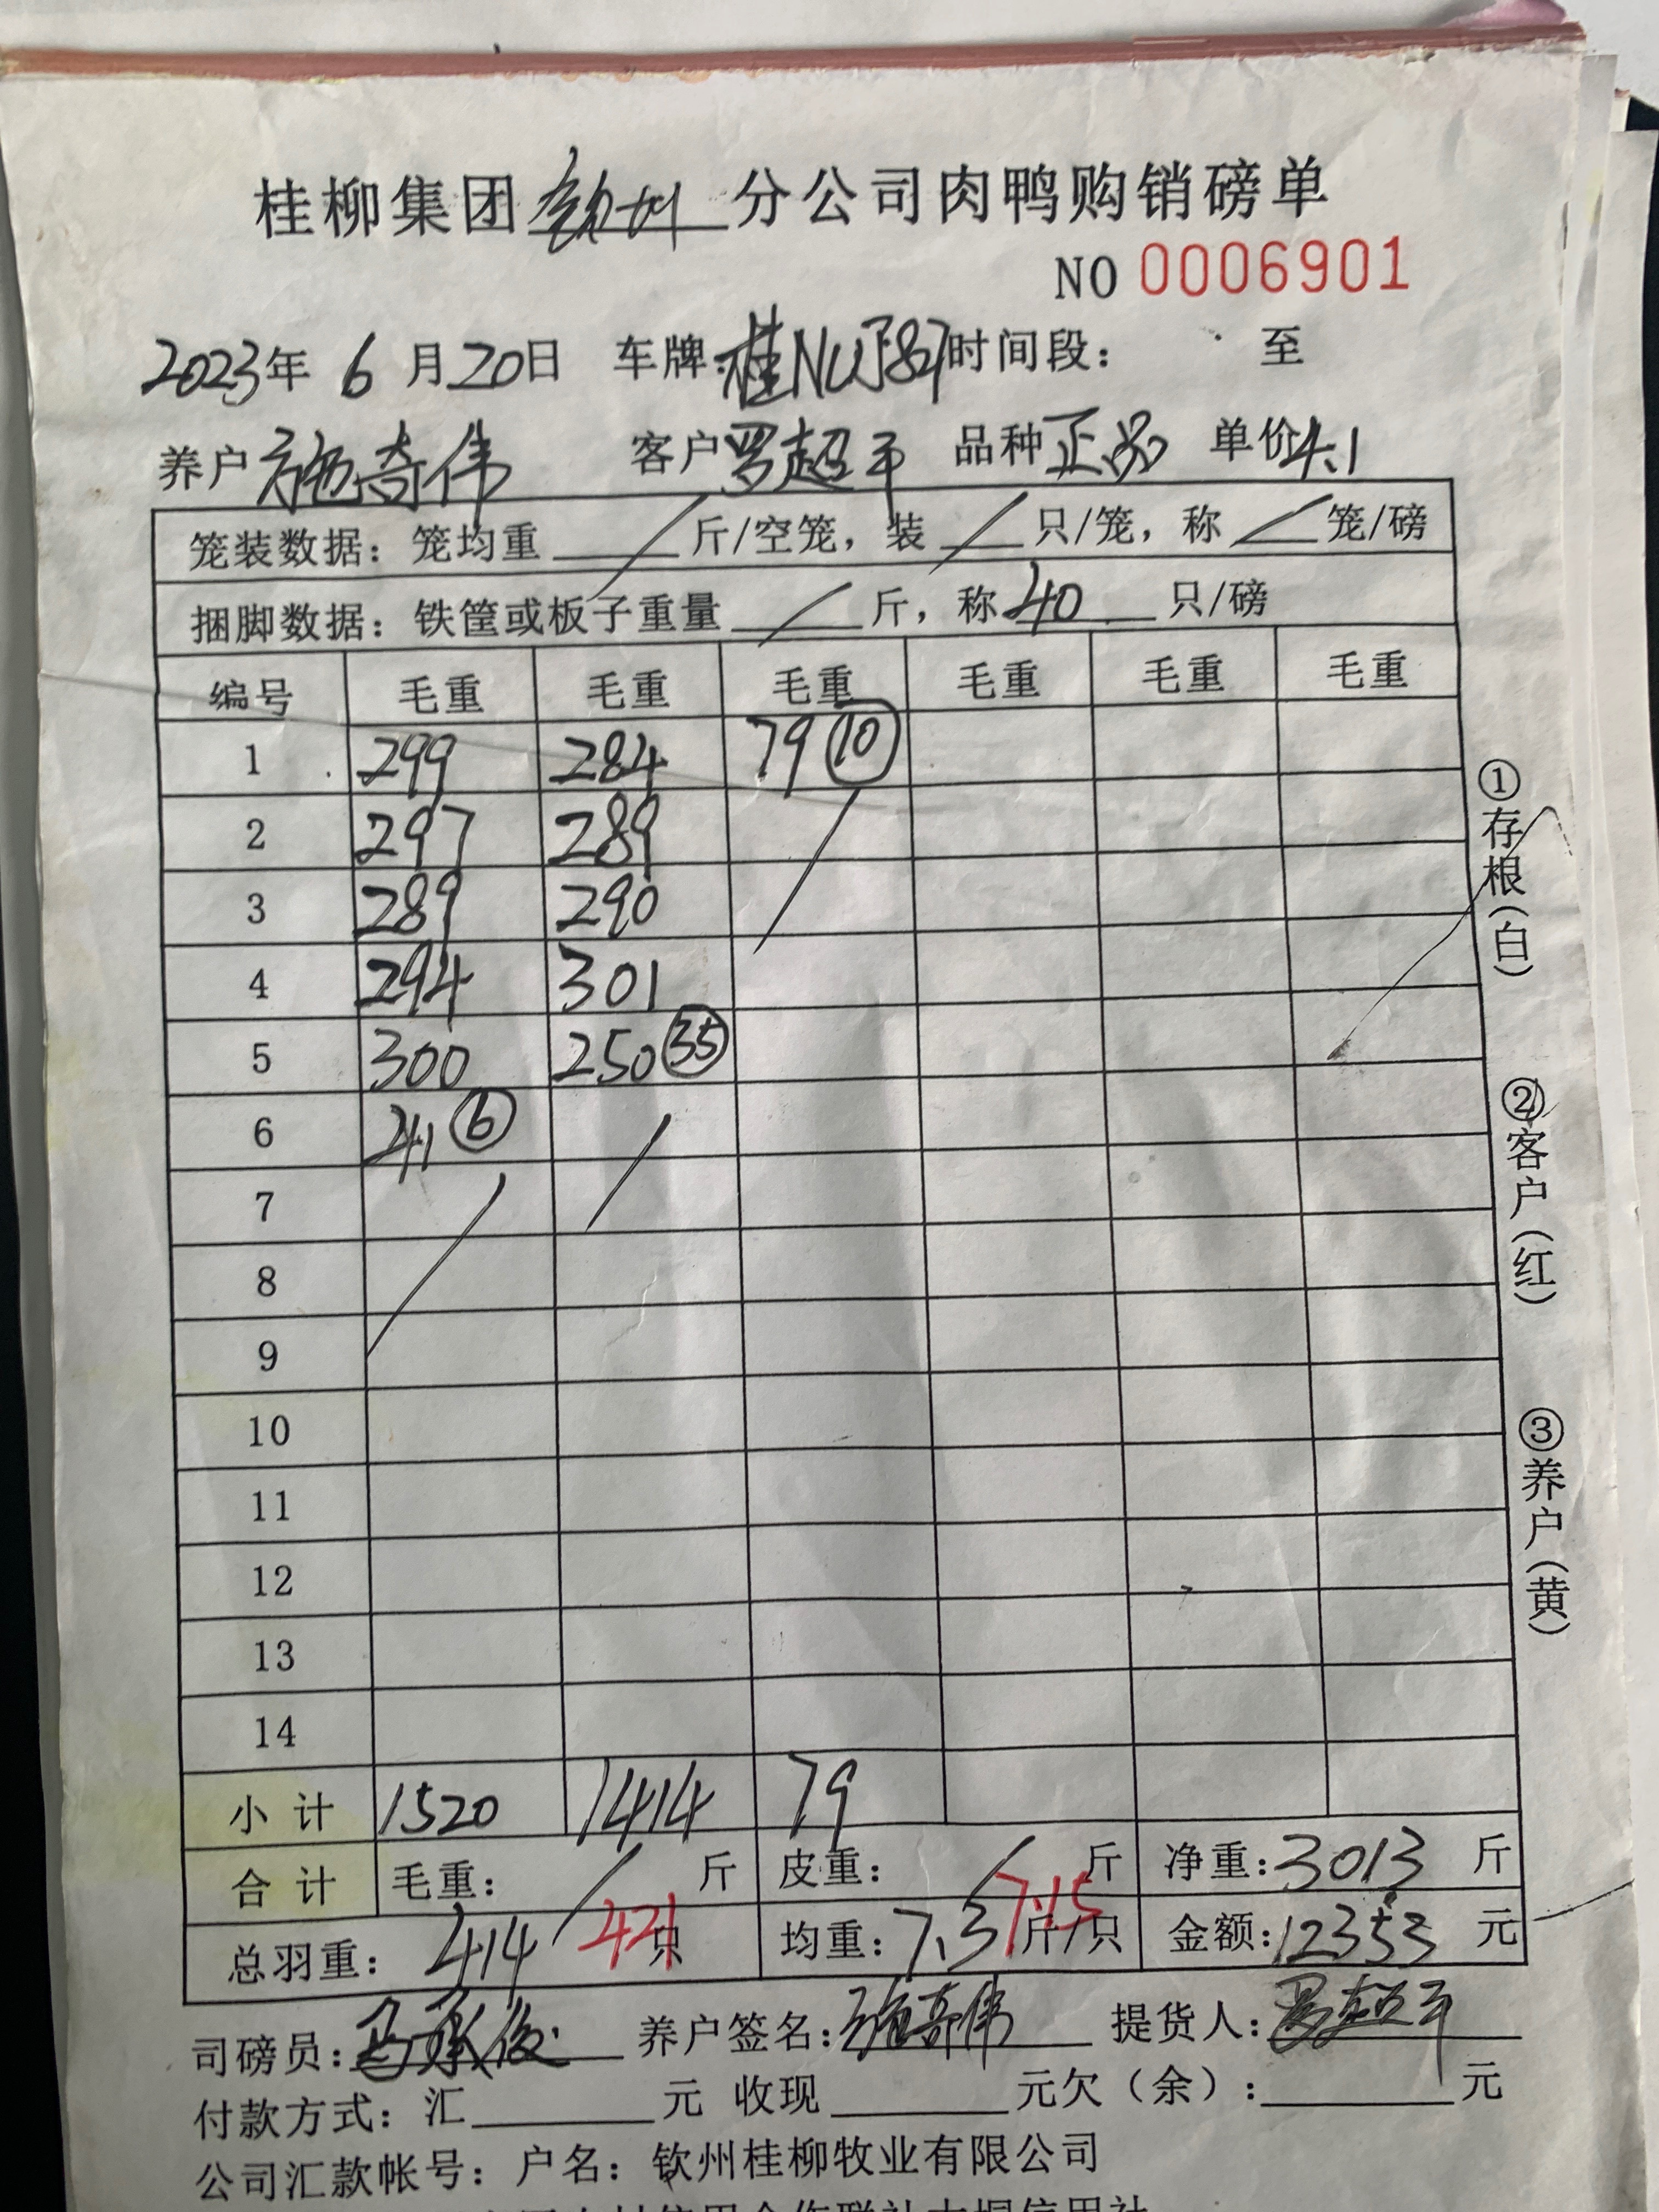 桂柳集团 钦州 分公司肉鸭购销磅单
NO 0006901
2023年 6 月20日 车牌:桂NUJ87 时间段: 至
养户 施奇伟 客户 罗超平 品种 正品 单价 4.1
笼装数据: 笼均重 / 斤/空笼, 装 / 只/笼, 称 / 笼/磅
捆脚数据: 铁筐或板子重量 / 斤, 称 40 只/磅
编号 毛重 毛重 毛重 毛重 毛重 毛重
1 299 284 79 ⑩
2 297 289
3 289 290
4 294 301
5 300 250 ㉟
6 41 ⑥
7
8
9
10
11
12
13
14
小 计 1520 1414 79
合 计 毛重: / 斤 皮重: / 斤 净重: 3013 斤
总羽重: 414 421 只 均重: 7.3 7.15 斤/只 金额: 12353 元
司磅员: 马承俊 养户签名: 施奇伟 提货人: 罗超平
付款方式: 汇 元 收现 元欠(余): 元
公司汇款帐号: 户名: 钦州桂柳牧业有限公司
①存根(白)
②客户(红)
③养户(黄)